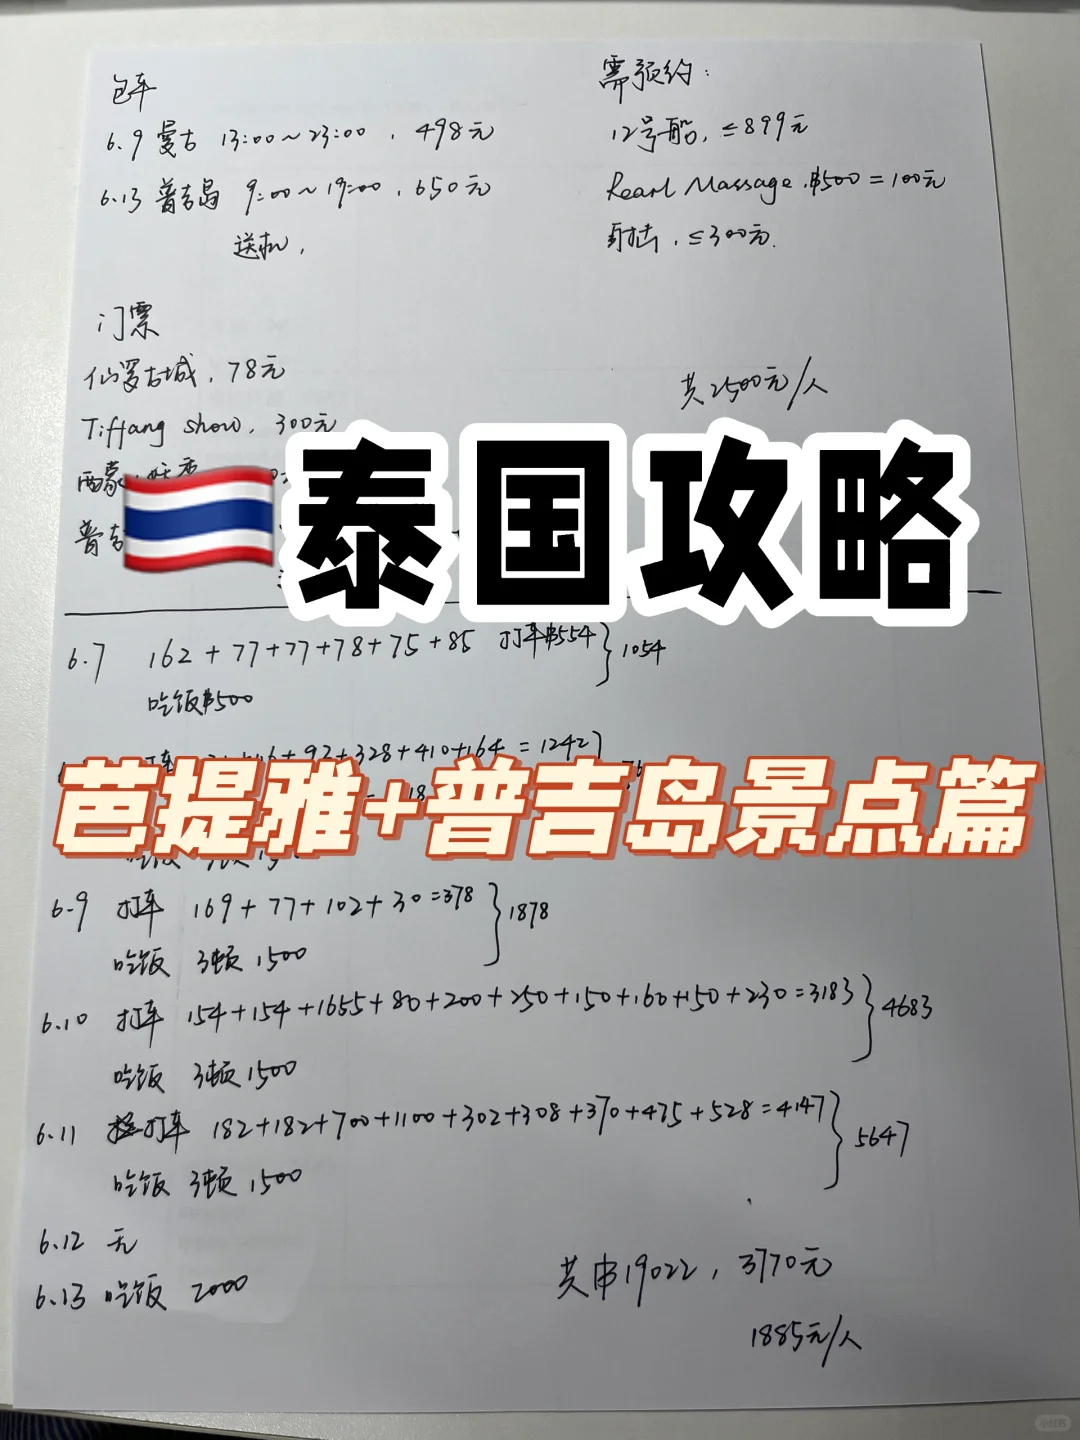 包车
6.9 曼古 13:00~23:00，498元
6.13 普吉岛 9:00~19:00，650元
送机，
需预约：
12号船，≤899元
Pearl Massage，฿500=100元
射击，≤300元.
门票
仙罗古城，78元
Tiffang show，300元
西蒙
普吉
共2500元/人
泰国攻略
6.7 162+77+77+78+75+85 打车฿554 } 1054
吃饭฿500
+92+328+410+164=1242
芭提雅+普吉岛景点篇
6.9 打车 169+77+102+30=378 } 1878
吃饭 3顿 1500
6.10 打车 154+154+1655+80+200+250+150+160+150+230=3183 } 4683
吃饭 3顿 1500
6.11 打车 182+182+700+1100+302+308+370+475+528=4147 } 5647
吃饭 3顿 1500
6.12 无
6.13 吃饭 2000
共฿19022，3770元
1885元/人
小红书